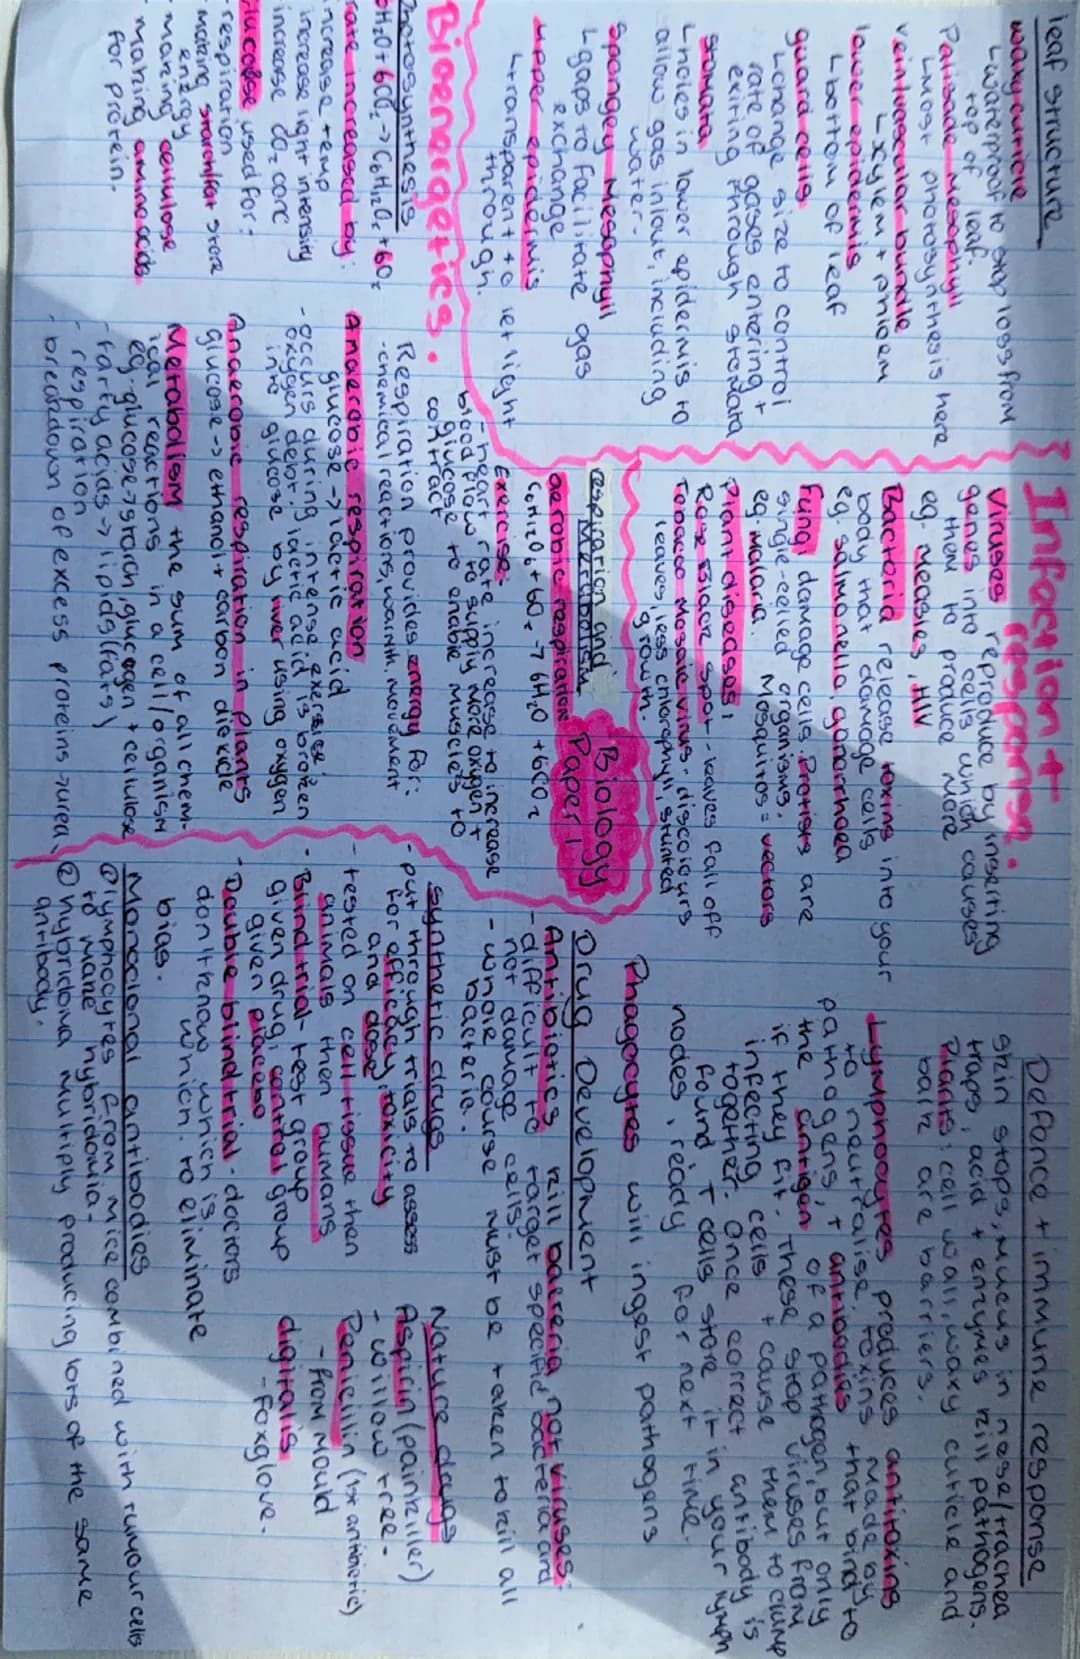 leaf structure
waxy cuticle
↳ waterproof to stop loss from
top of leaf.
Palisade mesophyll
↳ most photosynthesis here
vein/vascular bundle
↳ xylem + phloem
lower epidermis
↳ bottom of leaf
guard cells
↳ change size to control
rate of gases entering +
exiting through stomata
stomata
↳ holes in lower epidermis to
allow gas in/out, including
water.
spongey mesophyll
↳ gaps to facilitate gas
exchange
upper epidermis
↳ transparent to let light
through.
Infection +
response.
Viruses reproduce by inserting
genes into cells which causes
them to produce more
eg. measles, HIV
Bacteria release toxins into your
body that damage cells
eg. salmonella, gonorrhoea
Fungi damage cells. Protists are
single-celled organisms.
eg. malaria. Mosquitos = vectors
Plant diseases:
Rose Black spot - leaves fall off
Tobacco Mosaic virus - discolours
leaves, less chlorophyll, stunted
growth.
Defence + immune response
skin stops, mucus in nose/trachea
traps, acid + enzymes kill pathogens.
Plants: cell wall, waxy cuticle and
bark are barriers.
Lymphocytes produces antitoxins
to neutralise toxins made by
pathogens, + antibodies that bind to
the antigen of a pathogen, but only
if they fit. These stop viruses from
infecting cells + cause them to clump
together. Once correct antibody is
found T cells store it in your lymph
nodes, ready for next time.
Phagocytes will ingest pathogens
Biology
Paper 1
Bioenergetics.
Photosynthesis
6H2O + 6CO2 -> C6H12O6 + 6O2
rate increased by:
increase temp
increase light intensity
increase CO2 conc
Glucose used for:
- respiration
- making starch for store
energy
- making cellulose
- making amino acids
for protein.
respiration and
metabolism
aerobic respiration
C6H12O6 + 6O2 -> 6H2O + 6CO2
Exercise:
- heart rate increase to increase
blood flow to supply more oxygen +
glucose to enable muscles to
contract
Respiration provides energy for:
- chemical reactions, warmth, movement
Anaerobic respiration
glucose -> lactic acid
- occurs during intense exersise.
oxygen debt. lactic acid is broken
into glucose by liver using oxygen
Anaerobic respiration in plants
glucose -> ethanol + carbon dioxide
Metabolism the sum of all chem-
ical reactions in a cell/organism
eg. glucose -> starch, glucogen + cellulose
- fatty acids -> lipids (fats)
- respiration
- breakdown of excess proteins -> urea
Drug Development
Antibiotics kill bacteria not viruses.
- difficult to target specific bacteria and
not damage cells.
- whole course must be taken to kill all
bacteria.
synthetic drugs
- put through trials to assess
for efficacy, toxicity
and dose
- tested on cell + tissue then
animals then humans
- Blind trial - test group
given drug, control group
given placebo
- Double blind trial - doctors
don't know which is
which. to eliminate
bias.
Nature drugs
Aspirin (painkiller)
- willow tree -
Penicillin (1st antibiotic)
- from mould
digitalis
- foxglove.
Monoclonal antibodies
① lymphocytes from mice combined with tumour cells
to make hybridomia-
② hybridoma multiply producing lots of the same
antibody.